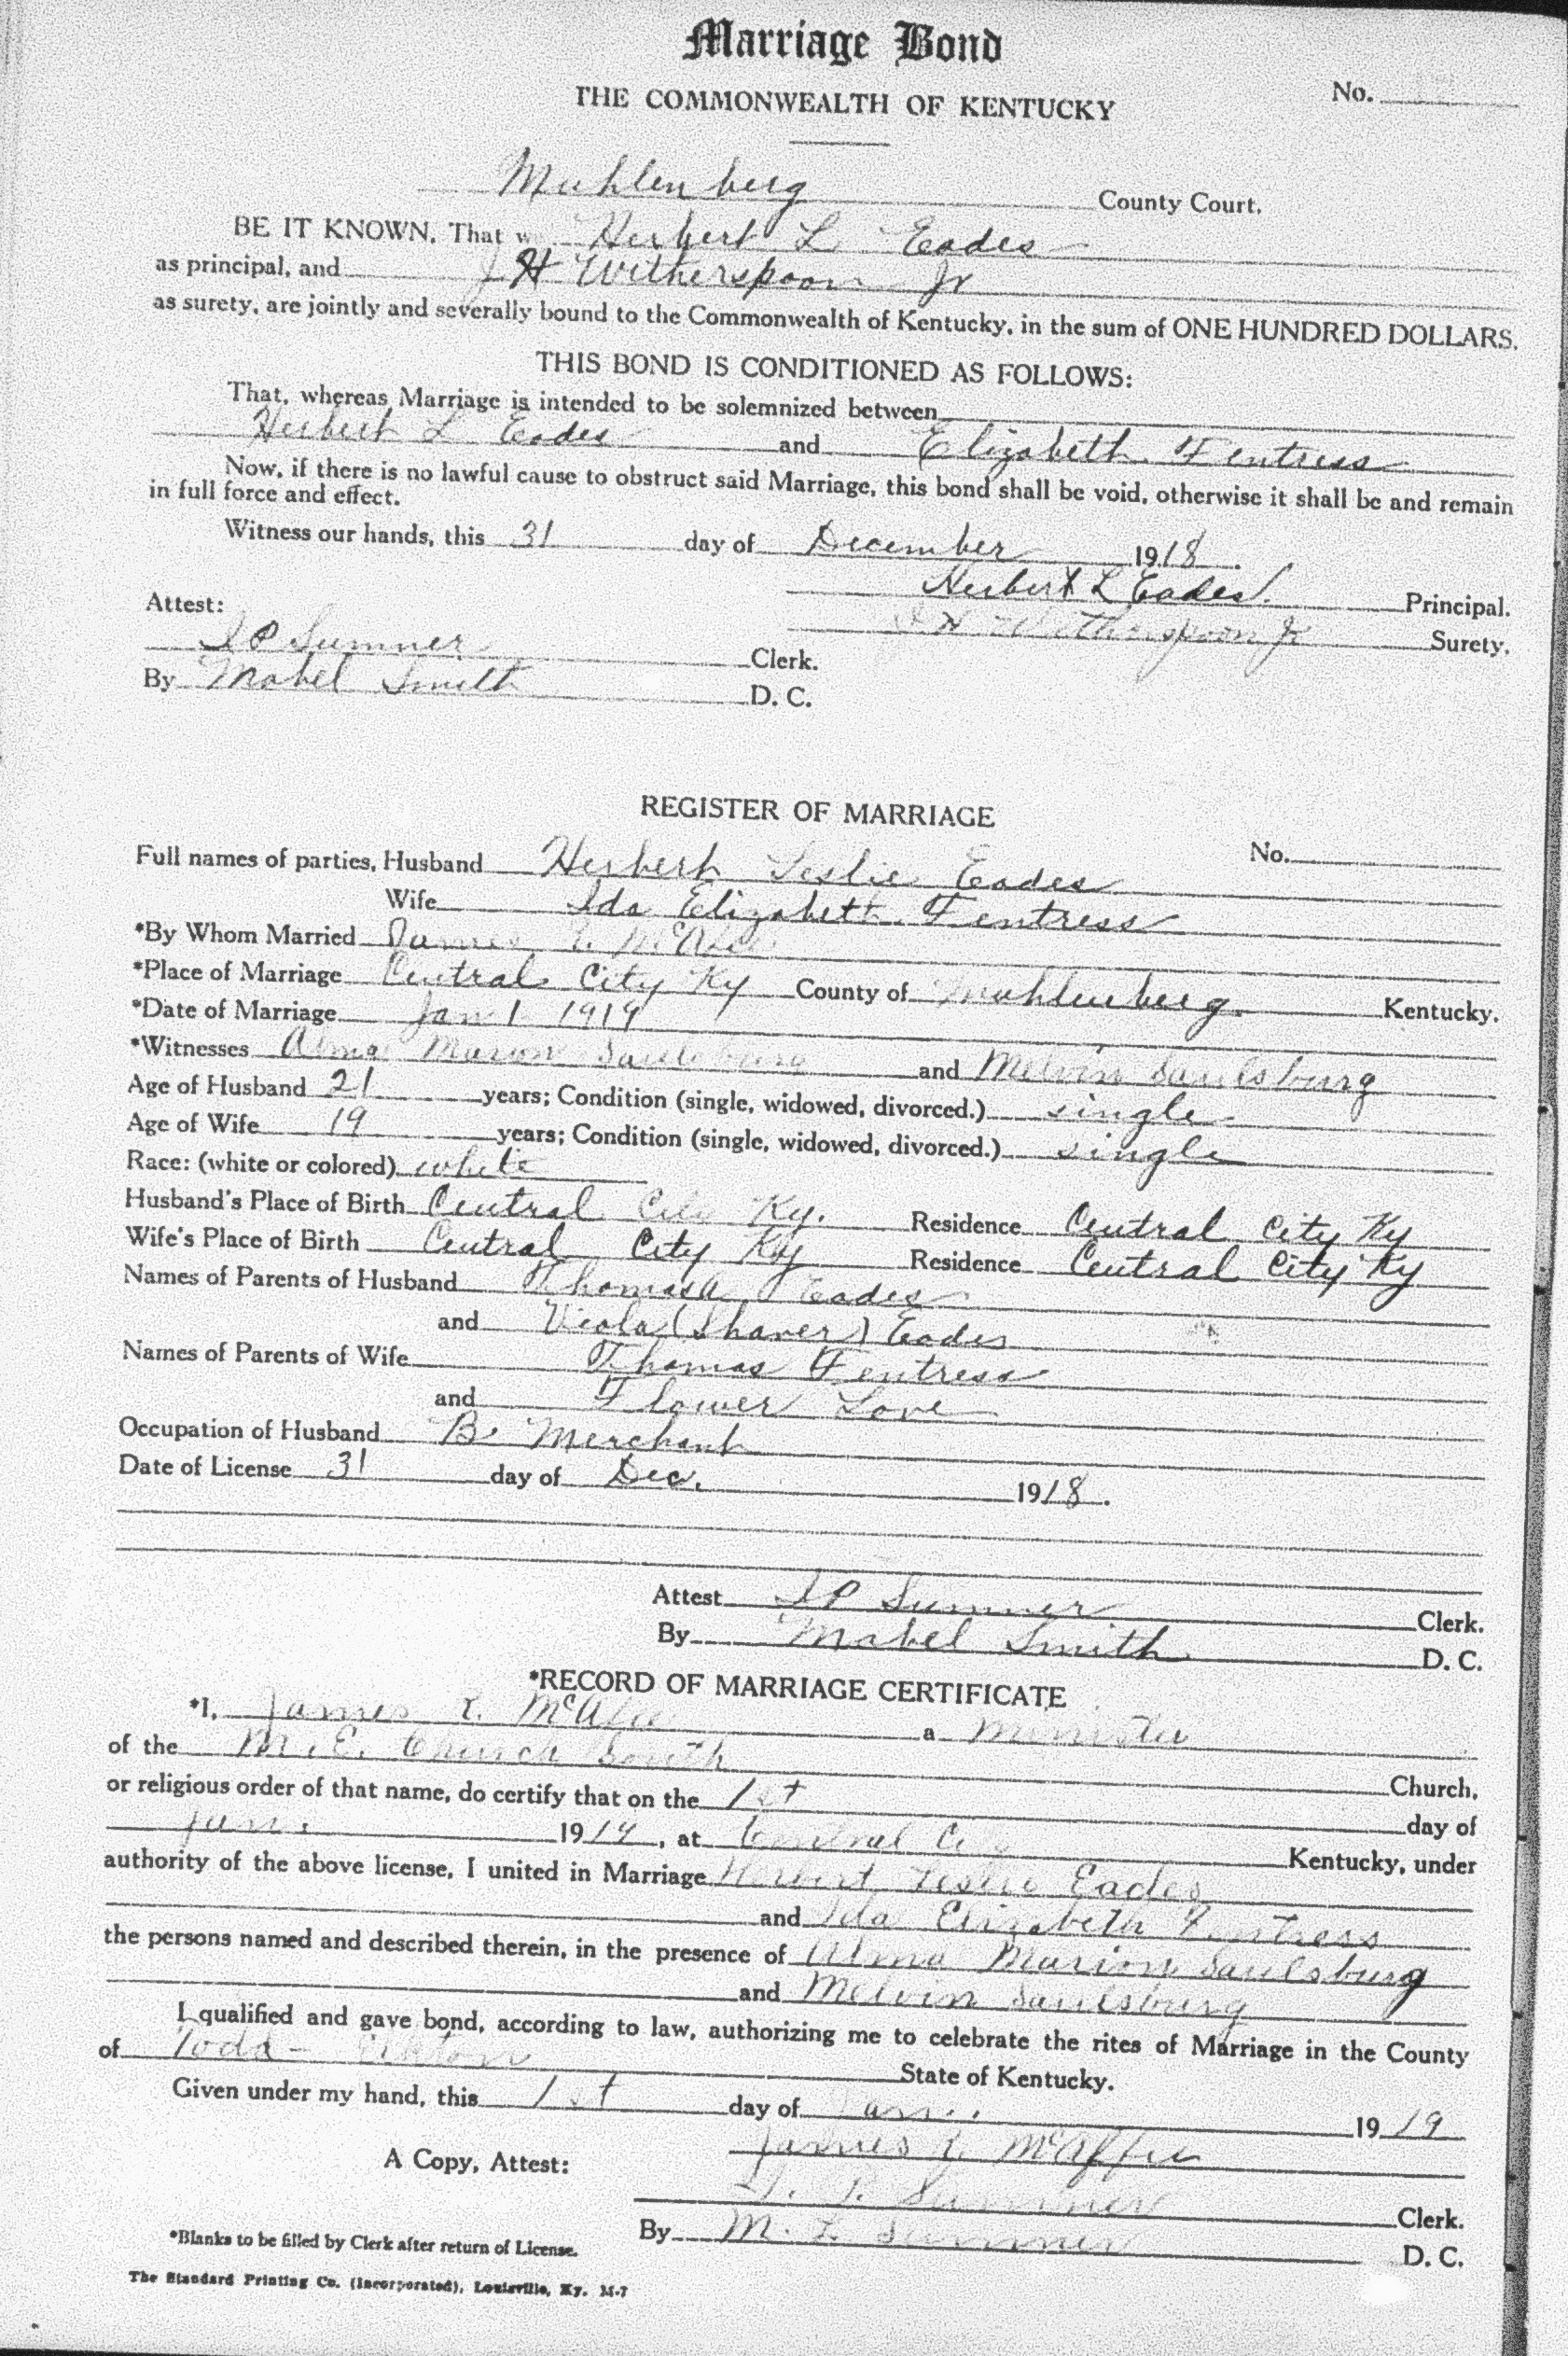 Marriage Bond
THE COMMONWEALTH OF KENTUCKY
No.
Muhlenberg County Court.
BE IT KNOWN, That we Herbert L Eades
as principal, and J H Witherspoon Jr
as surety, are jointly and severally bound to the Commonwealth of Kentucky, in the sum of ONE HUNDRED DOLLARS.
THIS BOND IS CONDITIONED AS FOLLOWS:
That, whereas Marriage is intended to be solemnized between
Herbert L Eades and Elizabeth Fentress
Now, if there is no lawful cause to obstruct said Marriage, this bond shall be void, otherwise it shall be and remain
in full force and effect.
Witness our hands, this 31 day of December 1918.
Herbert L Eades. Principal.
Attest:
J H Witherspoon Jr Surety.
Sumner Clerk.
By Mabel Smith D. C.
REGISTER OF MARRIAGE
No.
Full names of parties, Husband Herbert Leslie Eades
Wife Ida Elizabeth Fentress
*By Whom Married James
*Place of Marriage Central City Ky County of Muhlenberg. Kentucky.
*Date of Marriage Jan 1 1919
*Witnesses Alma Marion Saulsburg and Melvin Saulsburg
Age of Husband 21 years; Condition (single, widowed, divorced.) single
Age of Wife 19 years; Condition (single, widowed, divorced.) single
Race: (white or colored) white
Husband's Place of Birth Central City Ky. Residence Central City Ky
Wife's Place of Birth Central City Ky Residence Central City Ky
Names of Parents of Husband Thomas A Eades
and Viola (Shaver) Eades
Names of Parents of Wife Thomas Fentress
and Flower Love
Occupation of Husband B. Merchant
Date of License 31 day of Dec. 1918.
Attest Sumner Clerk.
By Mabel Smith D. C.
*RECORD OF MARRIAGE CERTIFICATE
*I, James a minister
of the M. E. Church South Church,
or religious order of that name, do certify that on the 1st day of
Jan. 1919, at Central City Kentucky, under
authority of the above license, I united in Marriage Herbert Leslie Eades
and Ida Elizabeth Fentress
the persons named and described therein, in the presence of Alma Marion Saulsburg
and Melvin Saulsburg
I qualified and gave bond, according to law, authorizing me to celebrate the rites of Marriage in the County
of Todd - Elkton State of Kentucky.
Given under my hand, this 1st day of Jan. 1919
James McAffee
A Copy, Attest:
Sumner Clerk.
By M. L. Sumner D. C.
*Blanks to be filled by Clerk after return of License.
The Standard Printing Co. (Incorporated), Louisville, Ky. M-7